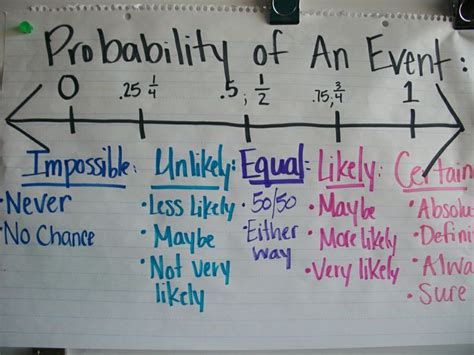 Probability of An Event:
0 .25 1/4 .5, 1/2 .75, 3/4 1
Impossible: Unlikely: Equal: Likely: Certain
• Never
• No Chance
• Less likely
• Maybe
• Not very
likely
• 50/50
• Either
way
• Maybe
• More likely
• Very likely
• Absolu
• Definit
• Alwa
• Sure